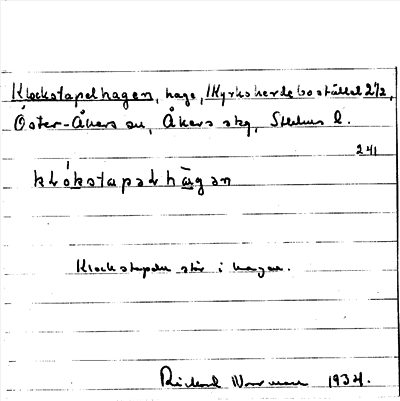 Klockstapelhagen, hage, Kyrkoherdebostället 2 1/2,
Öster-Åkers sn, Åkers skg, Sthlms l.
241
klókstapəlhāgən
Klockstapeln står i hagen.
Rickard 1934.